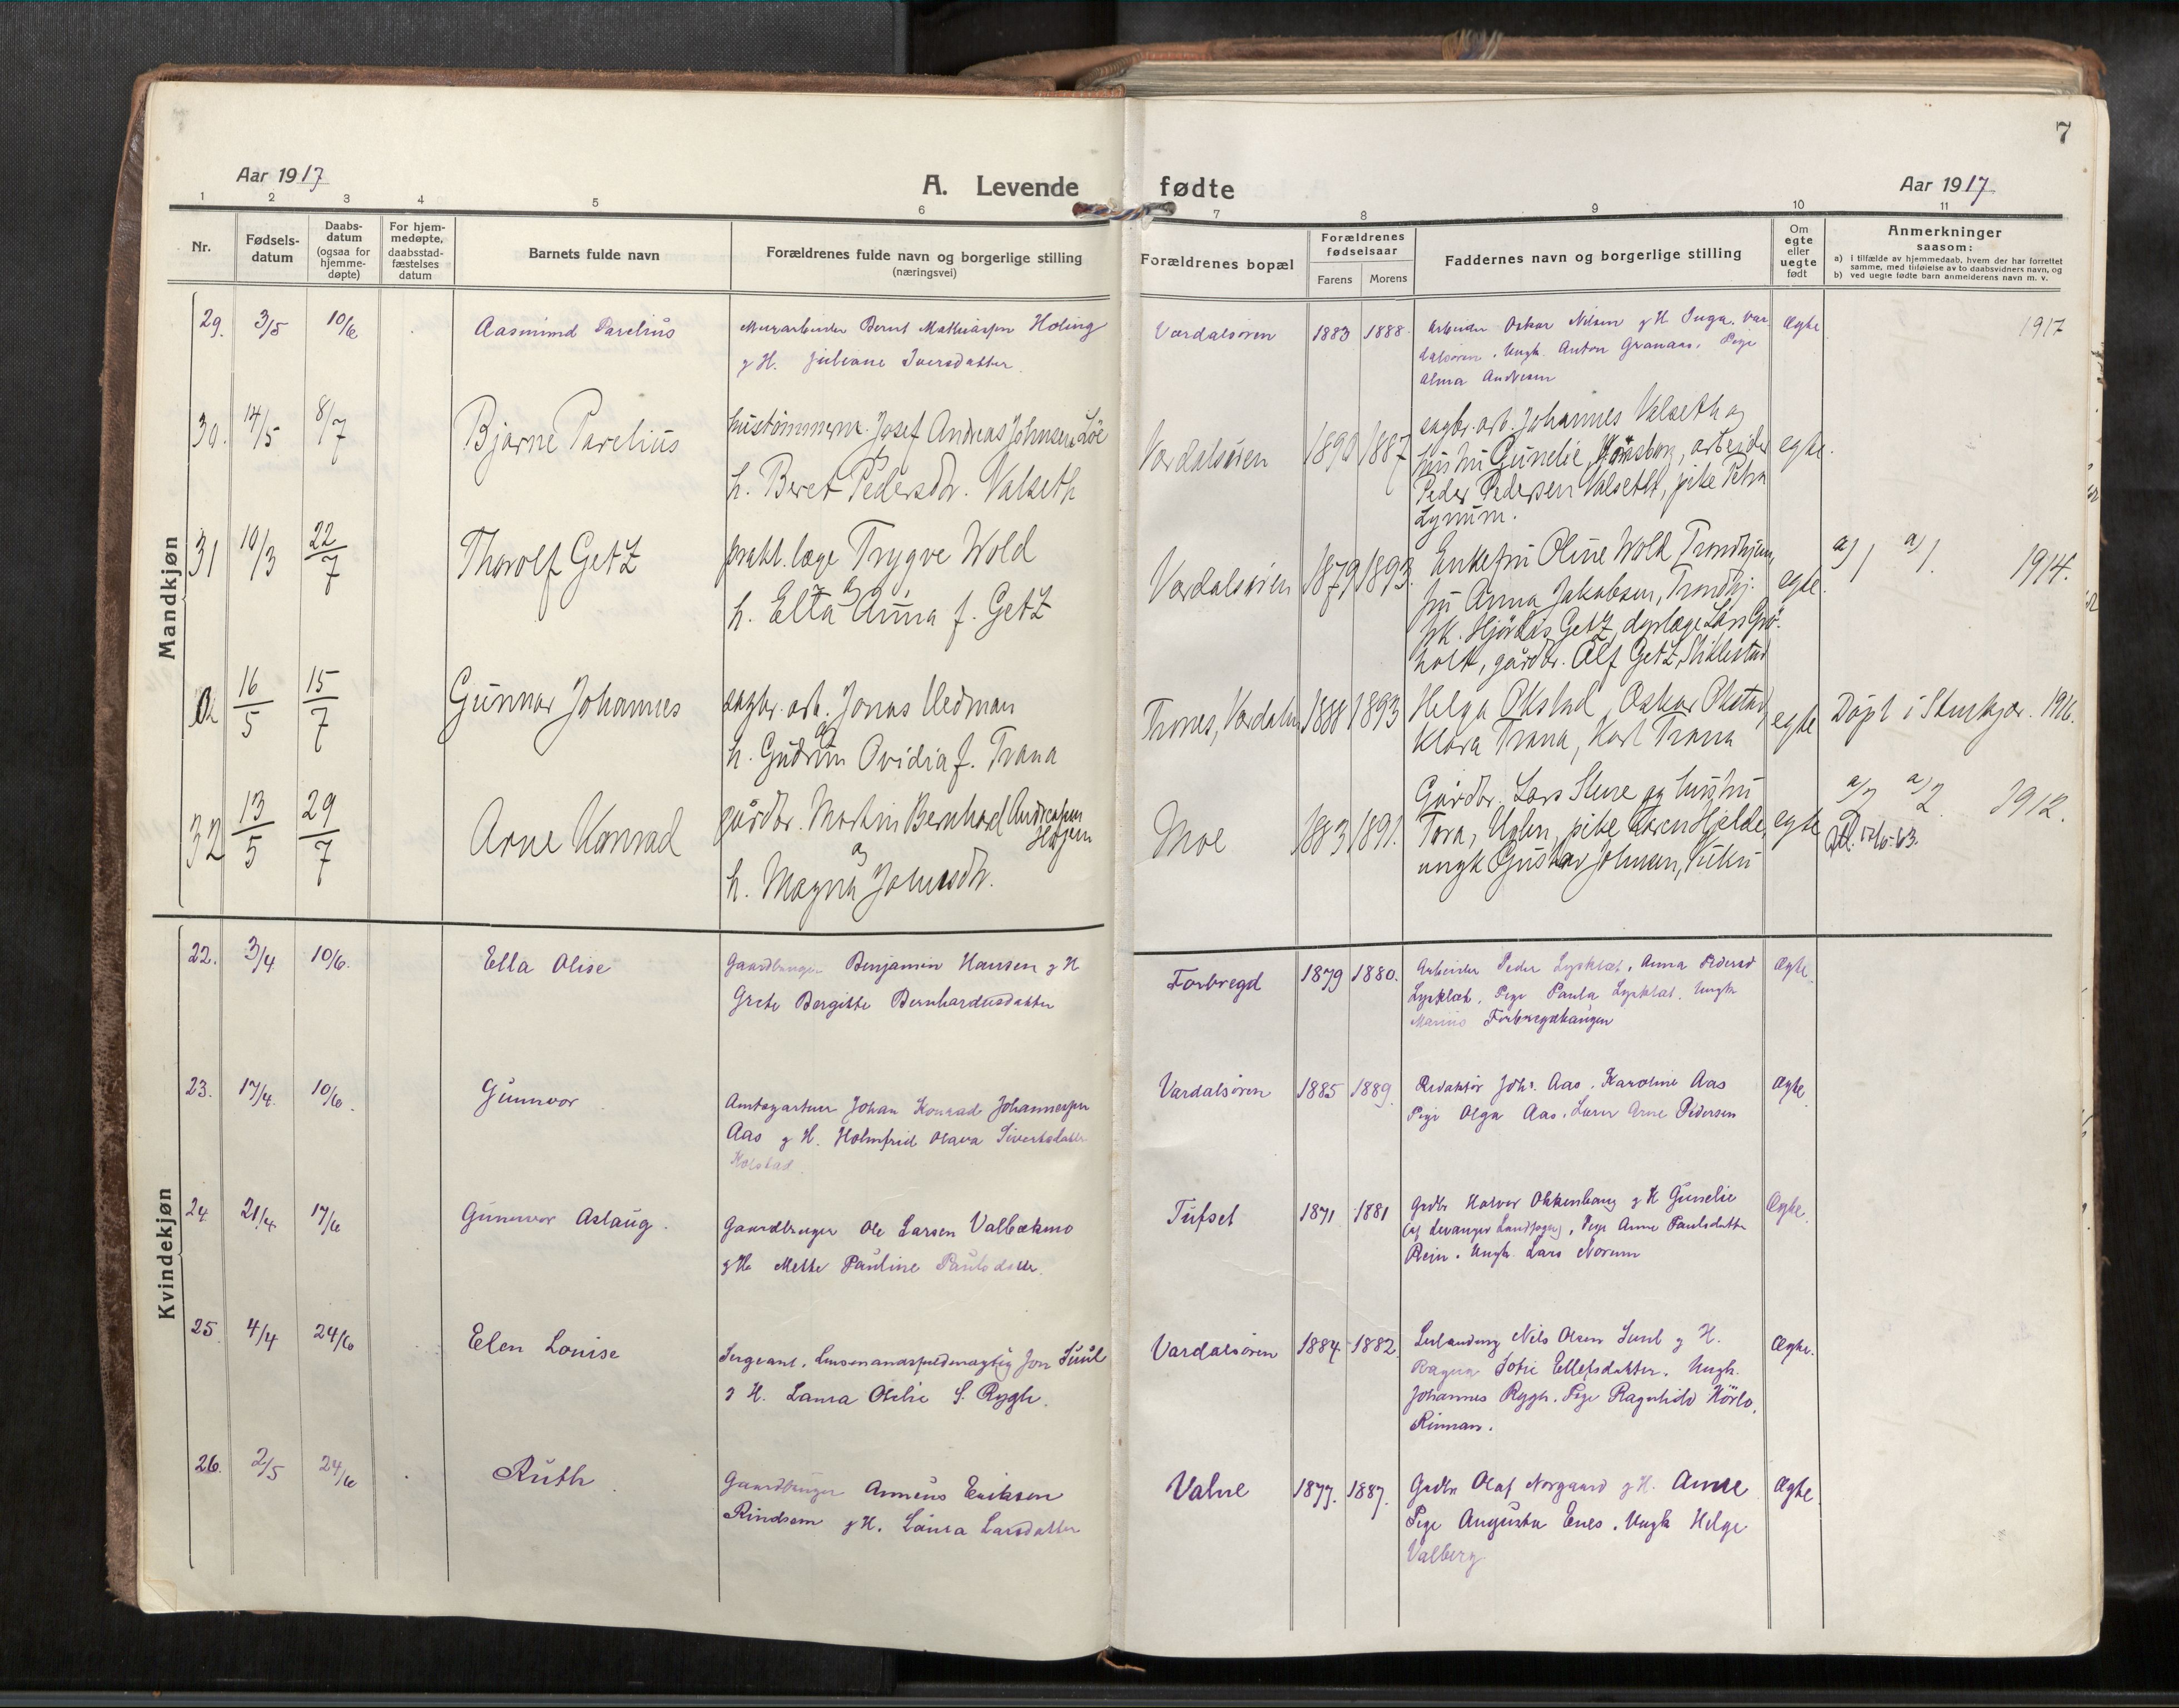 7
Aar 1917
A. Levende fødte
Aar 1917
1 2 3 4 5 6 7 8 9 10 11
Nr.
Fødsels-
datum
Daabs-
datum
(ogsaa for
hjemme-
døpte)
For hjem-
medøpte,
daabsstad-
fæstelses
datum
Barnets fulde navn
Forældrenes fulde navn og borgerlige stilling
(næringsvei)
Forældrenes bopæl
Forældrenes
fødselsaar
Farens
Morens
Faddernes navn og borgerlige stilling
Om
egte
eller
uegte
født
Anmerkninger
saasom:
a) i tilfælde av hjemmedaab, hvem der har forrettet
samme, med tilføielse av to daabsvidners navn, og
b) ved uegte fødte barn anmelderens navn m. v.
Mandkjøn
29. 3/5 10/6 Aasmund Parelius
Murarbeider Bernt Mathiassen Holing
g H. Juliane Iversdatter
Værdalsøren 1883 1888.
Arbeider Oskar Nilsen g H Inga, Vær-
dalsøren. Ungk. Anton Granaas. Pige
Alma Andresen
Ægte
1917
30. 14/5 8/7 Bjarne Parelius
hustømmerm. Josef Andreas Johnsen Löe
h. Beret Pedersdtr. Valseth
Værdalsøren 1890 1887
sagbr. arb. Johannes Valseth og
hustru Gunelie, arbeider
Peder Pedersen Valseth, pike Petra
Lynum.
egte.
31 10/3 22/7 Thorolf Getz
prakt. læge Trygve Wold
og
h. Elta Anna f. Getz
Værdalsøren 1879 1893.
Enkefru Oline Wold Trondhjem,
fru Anna Jakobsen, Trondhj.
frk. Hjördis Getz, dyrlæge Lars Grö-
holt, gårdbr. Alf Getz, Stiklestad
egte.
a) 1 a) 1. 1914.
16/5 15/7 Gunnar Johannes
sagbr. arb. Jonas Vedman
og
h. Gudrun Ovidia f. Trana
Trones, Værdalen 1888 1893
Helga Okstad, Oskar Okstad,
Klara Trana, Karl Trana
egte
Döpt i Stenkjær. 1916.
32 13/5 29/7 Arne Konrad
gårdbr. Martin Bernhard Andreassen
og
h. Magna Johnsdtr.
Moe 1883 1891.
Gårdbr. Lars Stene og hustru
Tora, Uglen, pike Karen Hjelde,
ungk Gustav Johnsen,
egte
a) 2 a) 2. 1912.
Kvindekjøn
22. 3/4 10/6. Ella Olise
Gaardbruger Benjamin Hansen g H
Grete Bergitte Bernhardusdatter
Forbregd 1879 1880.
Arbeider Peder Lysklæt, Anna Pedersd
Lysklæt, Pige Paula Lysklæt, Ungk
Marius Forbregdhaugen
Ægte.
23. 17/4. 10/6. Gunnvor
Amtsgartner Johan Konrad Johannessen
Aas g H. Holmfrid Olava Sivertsdatter
Kolstad.
Værdalsøren 1885 1889.
Redaktør Johs. Aas, Karoline Aas
Pige Olga Aas, Lærer Arne Pedersen
Ægte
24 21/4 17/6 Gunnvor Aslaug.
Gaardbruger Ole Larsen Valbækmo
g H. Mette Pauline Paulsdatter.
Tufset 1871 1881
Grdbr Halvor Okkenhaug g H Gunelie
(af Levanger Landsogn), Pige Anne Paulsdatter
Rein. Ungk. Lars Norum
Ægte.
25. 4/4 24/6 Elen Louise
Sergeant, Lensmandsfuldmægtig Jon Suul
g H. Laura Otelie f. Rygh.
Værdalsøren 1884 1882.
Nils Olsen Suul g H.
Ragna Sofie Ellefsdatter. Ungk.
Johannes Rygh. Pige Ragnhild
Rinnan.
Ægte.
26. 2/5 24/6 Ruth.
Gaardbruger Anneus Eriksen
Rindsem g H. Laura Larsdatter
Valne 1877. 1887.
Grdbr Olaf Norgaard g H. Anne
Pige Augusta Enes. Ungk Helge
Valberg
Ægte